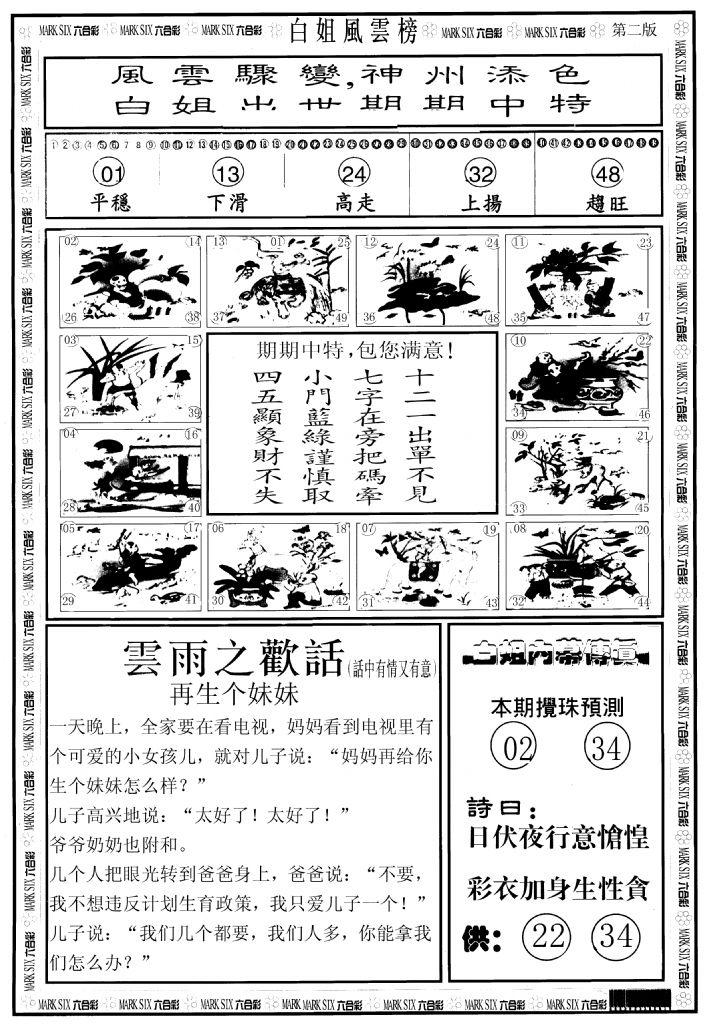 MARK SIX 六合彩 MARK SIX 六合彩 MARK SIX 六合彩 白姐風雲榜 MARK SIX 六合彩 MARK SIX 六合彩 第二版
風雲驟變,神州添色
白姐出世期期中特
01 13 24 32 48
平穩 下滑 高走 上揚 趨旺
02 14 13 01 25 12 24 11 23
26 38 37 49 36 48 35 47
03 15
27 39
10 22
34 46
04 16
28 40
09 21
33 45
期期中特,包您满意!
十二一出單不見
七字在旁把碼牽
小門藍綠謹慎取
四五顯象財不失
05 17 06 18 07 19 08 20
29 41 30 42 31 43 32 44
雲雨之歡話(話中有情又有意)
再生个妹妹
一天晚上，全家要在看电视，妈妈看到电视里有
个可爱的小女孩儿，就对儿子说：“妈妈再给你
生个妹妹怎么样？”
儿子高兴地说：“太好了！太好了！”
爷爷奶奶也附和。
几个人把眼光转到爸爸身上，爸爸说：“不要，
我不想违反计划生育政策，我只爱儿子一个！”
儿子说：“我们几个都要，我们人多，你能拿我
们怎么办？”
白姐内幕傳真
本期攪珠預測
02 34
詩曰：
日伏夜行意愴惶
彩衣加身生性貪
供：22 34
MARK SIX 六合彩 MARK SIX 六合彩 MARK SIX 六合彩 MARK SIX 六合彩 MARK SIX 六合彩 MARK SIX 六合彩 MARK SIX 六合彩